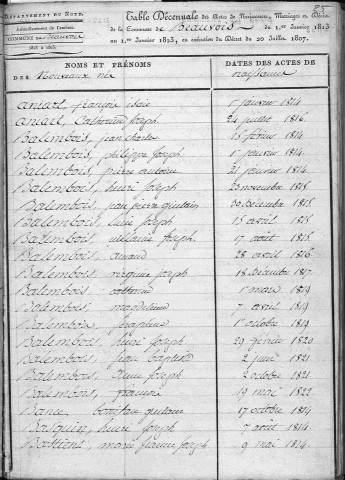 DÉPARTEMENT DU NORD.
Arrondissement de Cambrai.
COMMUNE de Beauvois
1813 à 1823.
Table Décennale des Actes de Naissances, Mariages et Décès
de la Commune de Beauvois du 1.er Janvier 1813
au 1.er Janvier 1823, en exécution du Décret du 20 Juillet 1807.
NOMS ET PRÉNOMS DATES DES ACTES DE
DES Nouveaux née naissance
aniart, françois 1 janvier 1814
aniart, Catherine Joseph 24 juillet 1816
Balembois, jean charles 15 février 1814
Balembois, philippe joseph 1 janvier 1814
Balembois, pierre antoine 21 janvier 1814
Balembois, henri joseph 23 novembre 1815
Balembois, jean pierre 30 Décembre 1815
Balembois, joseph 15 avril 1815
Balembois, mélanie joseph 17 août 1815
Balembois, amand 28 avril 1816
Balembois, joseph 18 Décembre 1817
Balembois, 1 mars 1819
Balembois, magdeleine 7 avril 1819
Balembois, séraphine 1 octobre 1819
Balembois, henri joseph 29 février 1820
Balembois, jean baptiste 2 juin 1821
Balembois, joseph 2 octobre 1821
Balembois, 19 mai 1822
Bance, 17 octobre 1814
henri joseph 7 août 1814
marie joseph 9 mai 1814